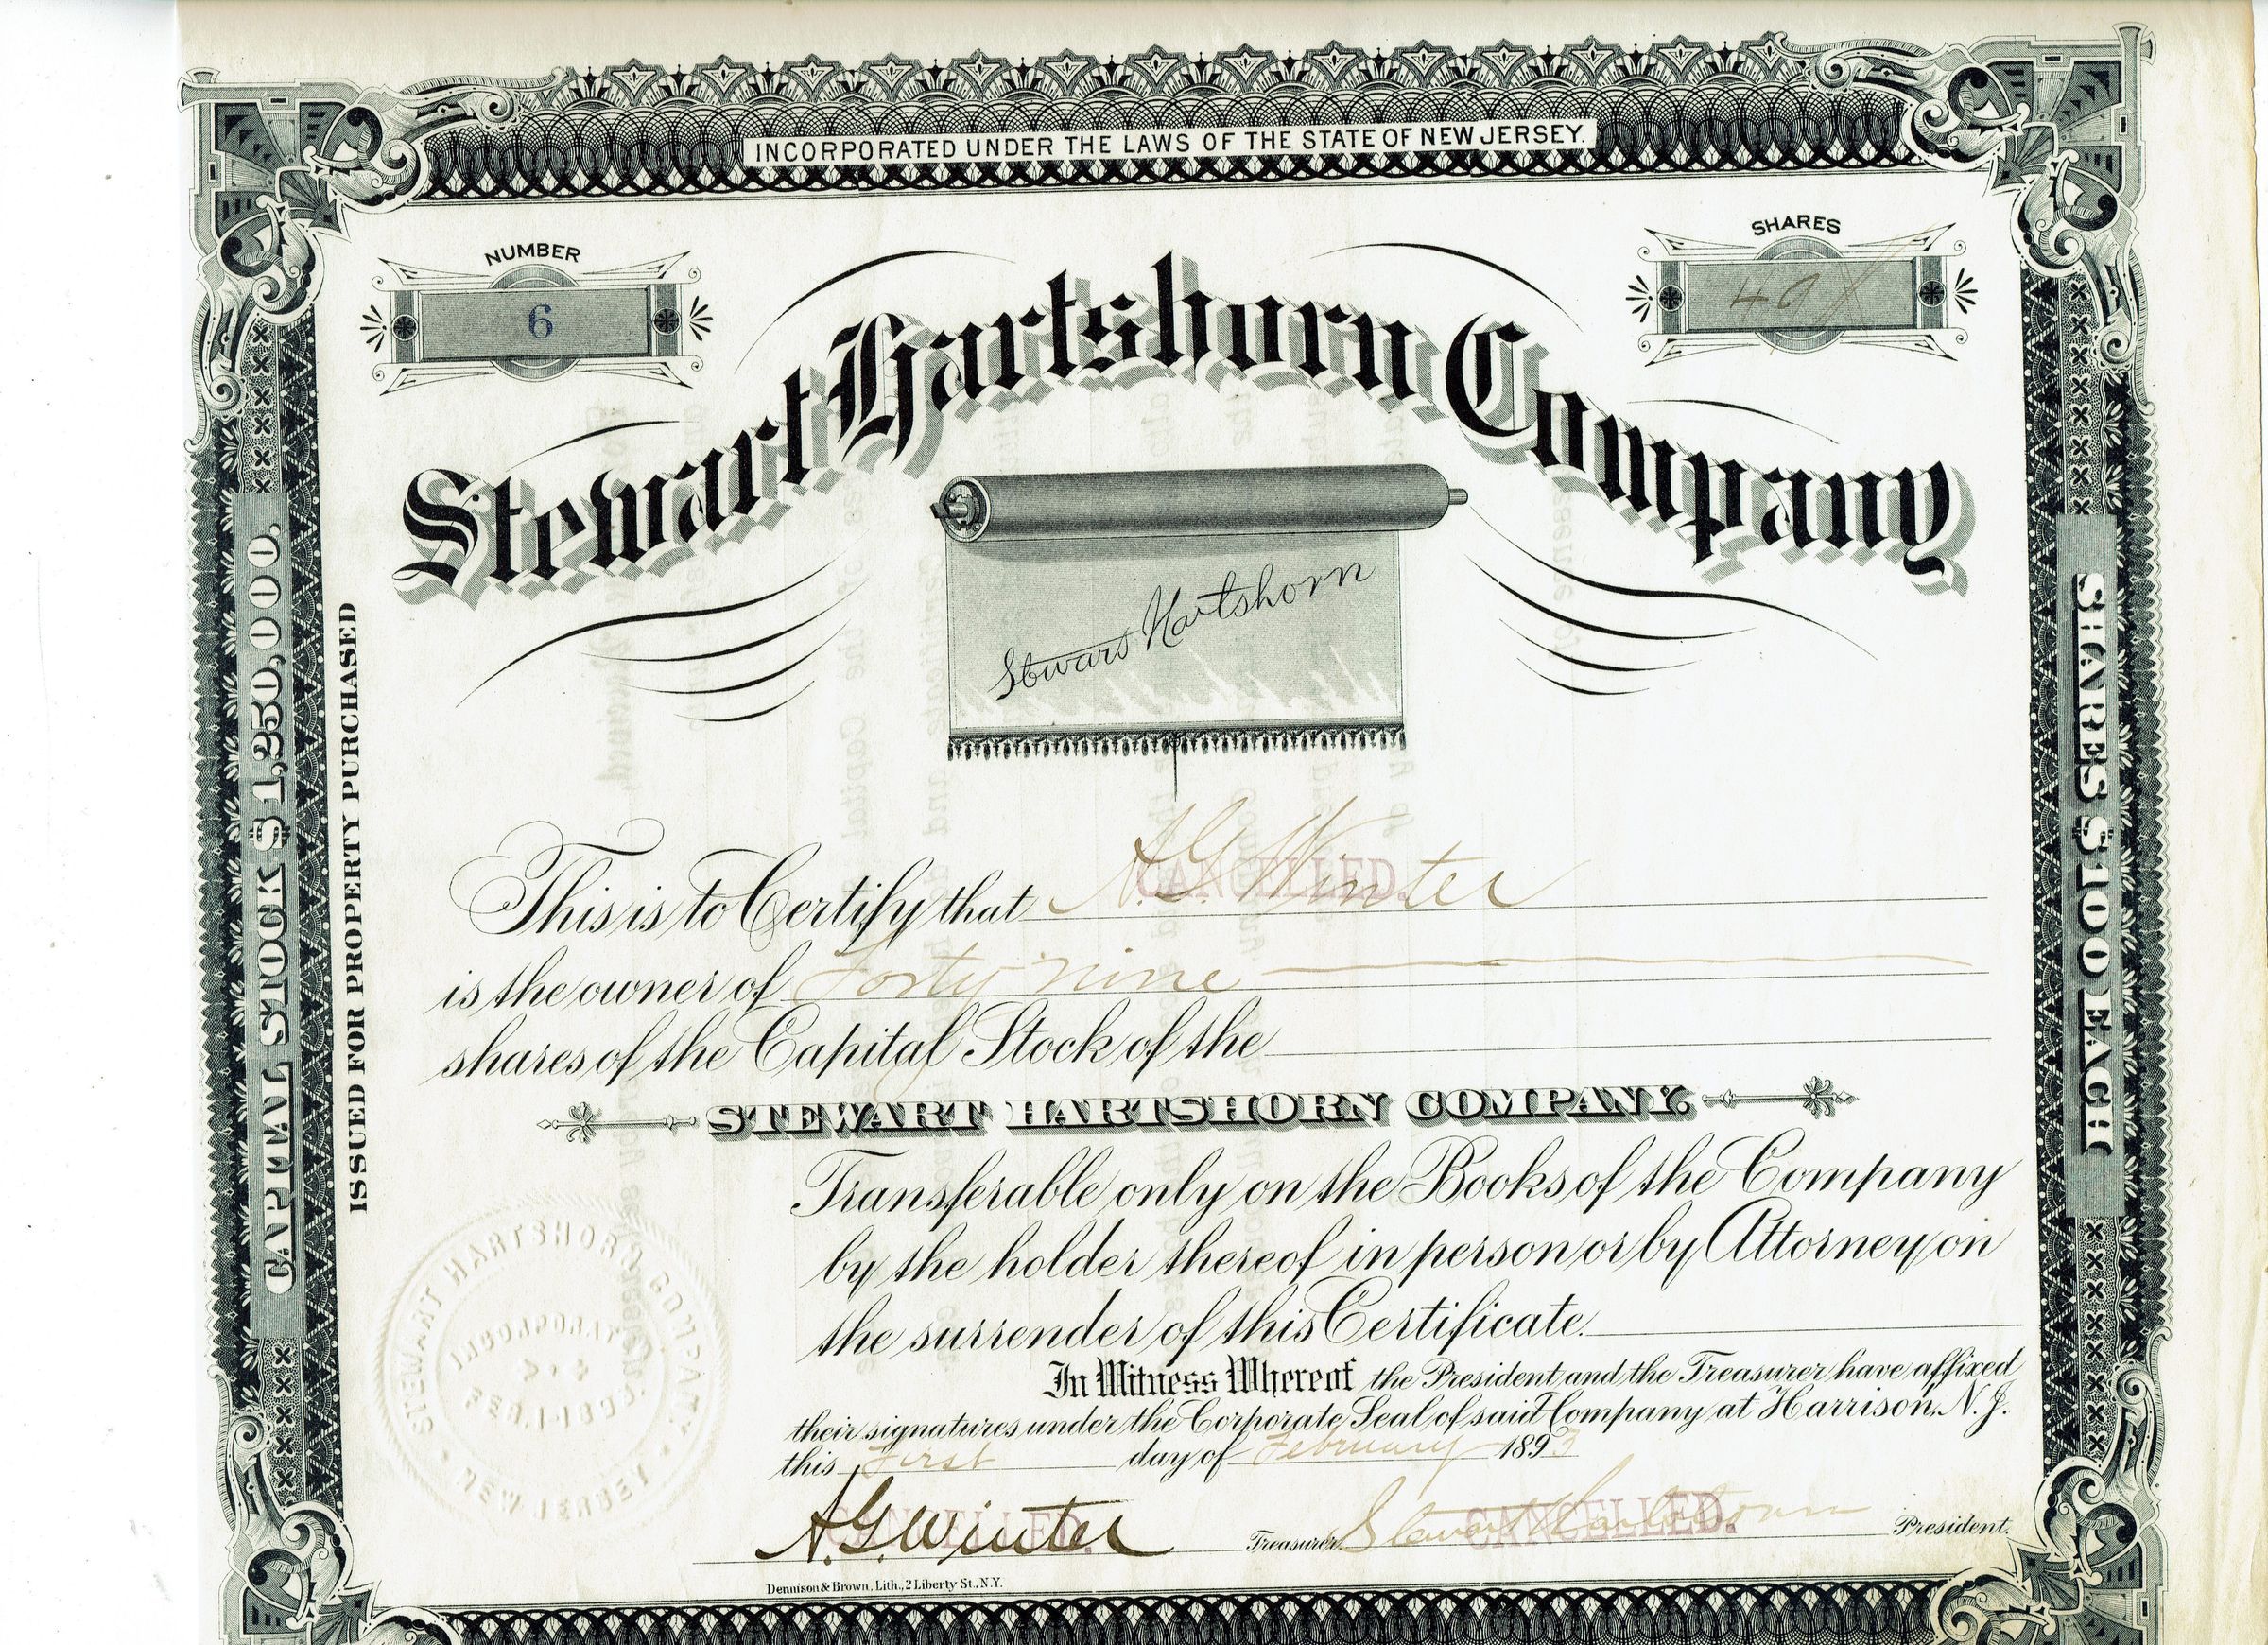 INCORPORATED UNDER THE LAWS OF THE STATE OF NEW JERSEY.
NUMBER
6
SHARES
49
Stewart Hartshorn Company
Stewart Hartshorn
CAPITAL STOCK $1,250,000.
ISSUED FOR PROPERTY PURCHASED
SHARES $100 EACH
This is to Certify that A.G. Winter
CANCELLED.
is the owner of Forty nine
shares of the Capital Stock of the
STEWART HARTSHORN COMPANY.
Transferable only on the Books of the Company
by the holder thereof in person or by Attorney on
the surrender of this Certificate.
In Witness Whereof the President and the Treasurer have affixed
their signatures under the Corporate Seal of said Company at Harrison, N.J.
this first day of February 1893
STEWART HARTSHORN COMPANY
NEW JERSEY
A.G. Winter Treasurer Stewart Hartshorn President.
CANCELLED. CANCELLED.
Dennison & Brown, Lith., 2 Liberty St., N.Y.